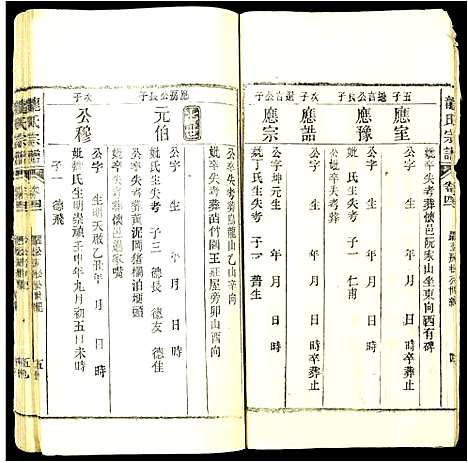 龍氏宗譜
卷四
妣生失考葬懷邑阮家山坐東向酉有碑
五子
應室
公字 生 年 月 日 時卒葬止
應豫
公字 生 年 月 日 時
妣失考 子一 仁甫
應誥
公字 生 年 月 日 時卒葬止
長子
應宗
公字坤元生 年 月 日 時
妣丁氏生失考 子一 普生
公卒失考葬烏龍山乙山辛向
妣卒失考葬苗竹園王莊屋旁卯山酉向
恩房公長子
元伯
公字 生 年 月 日 時
妣氏生失考 子三 德長 德友 德佳
公卒失考葬黃泥岡豬楊泊埂頭
妣卒失考葬懷邑過家嘴
次子
公穆
公字 生明天啟乙丑年 月 日 時
妣魏氏生明崇禎壬申年九月初五日未時
子一 德飛
龍氏宗譜
卷四